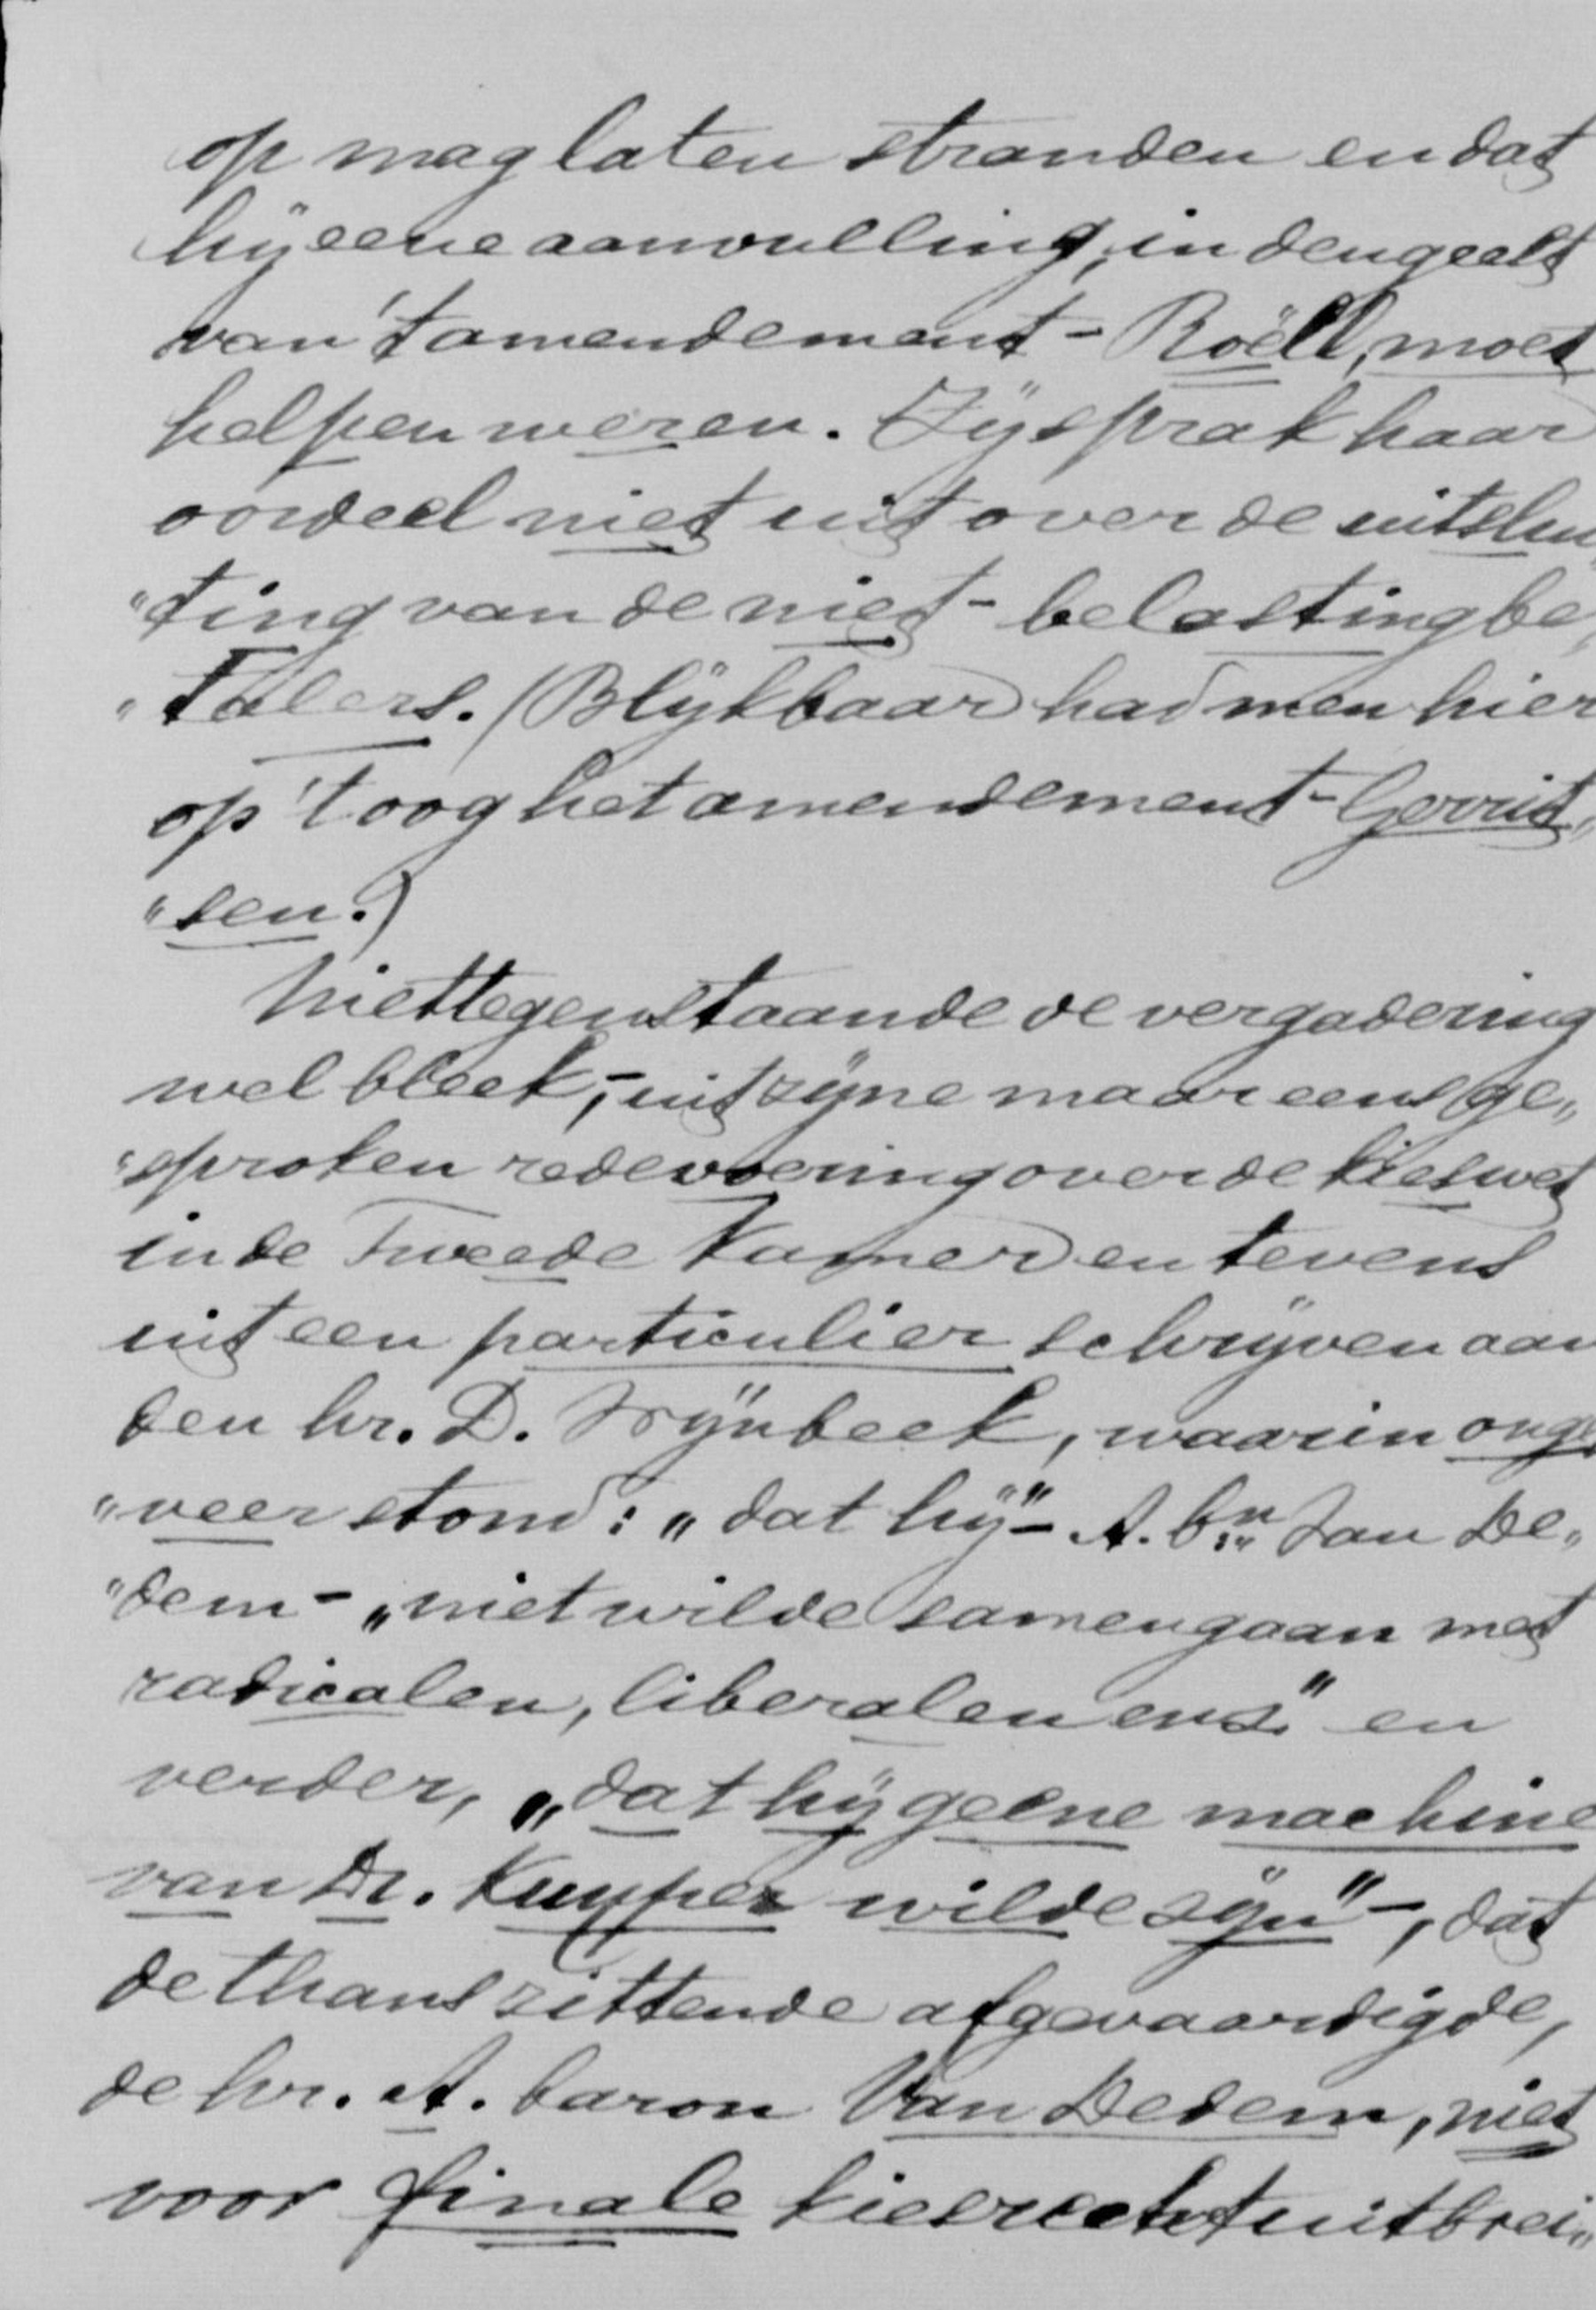 op mag laten stranden en dat
hij eene aanvulling, in den geest
van 't amendement - Roëll, moet
helpen weren. Zij sprak haar
oordeel niet uit over de uitslui„
"ting van de niet - belastingbe„
"talers. (Blijkbaar had men hier
op 't oog het amendement - Gerrit„
"sen.)
Niettegenstaande de vergadering
wel bleek, - uit zijne maar eens ge„
"sproken redevoering over de kieswet
in de Tweede Kamer en tevens
uit een particulier schrijven aan
den hr. D. Wijnbeek, waarin onge„
"veer stond: „dat hij" - A. bn. Van De„
"dem - „niet wilde samengaan met
radicalen, liberalen enz." en
verder, „dat hij geene machine
van Dr. Kuyper wilde zijn" -, dat
de thans zittende afgevaardigde,
de hr. A. baron Van Dedem, niet
voor finale kiesrechtuitbrei„